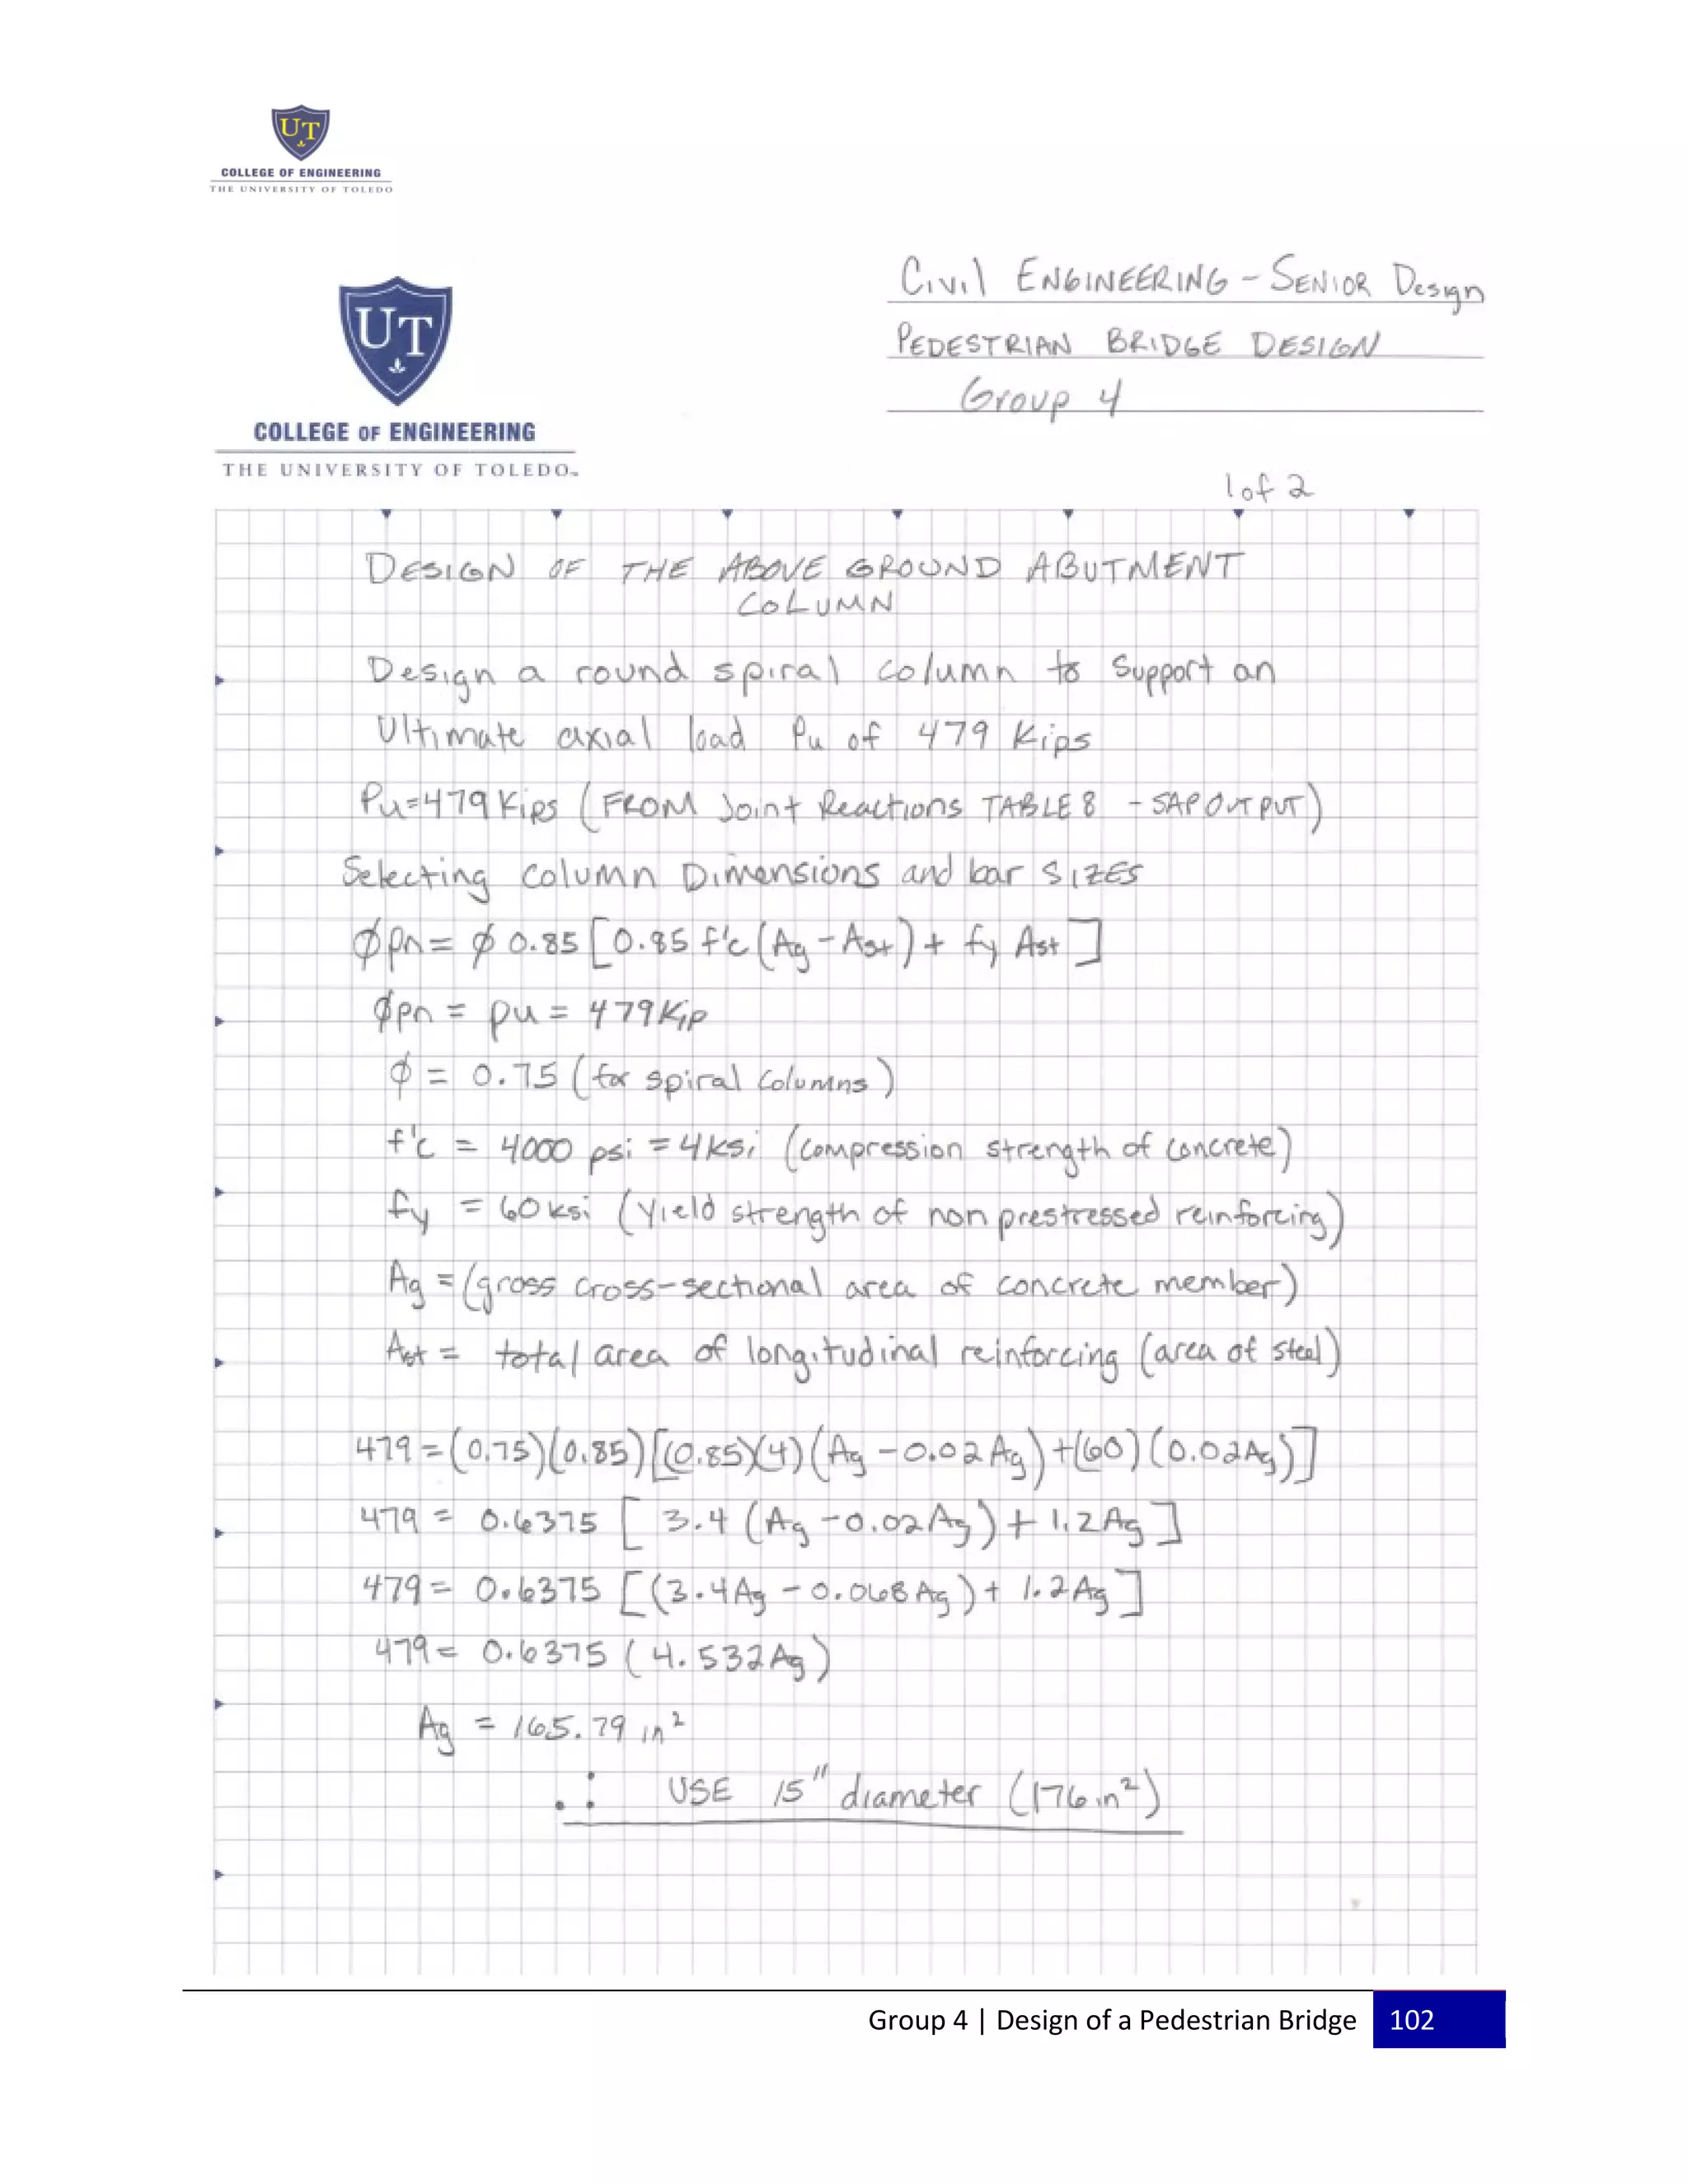 UT
COLLEGE OF ENGINEERING
THE UNIVERSITY OF TOLEDO
UT
COLLEGE OF ENGINEERING
THE UNIVERSITY OF TOLEDO™
Civil ENGINEERING - SENIOR Design
PEDESTRIAN BRIDGE DESIGN
Group 4
1 of 2
DESIGN OF THE ABOVE GROUND ABUTMENT
COLUMN
Design a round spiral column to Support an
Ultimate axial load Pu of 479 Kips
Pu=479 Kips (FROM Joint Reactions TABLE 8 - SAP OUTPUT)
Selecting Column Dimensions and bar SIZES
ØPn = Ø 0.85 [0.85 f'c (Ag - Ast) + fy Ast]
ØPn = pu = 479 Kip
Ø = 0.75 (for spiral Columns)
f'c = 4000 psi = 4 ksi (compression strength of concrete)
fy = 60 ksi (Yield strength of non prestressed reinforcing)
Ag = (gross cross-sectional area of concrete member)
Ast = total area of longitudinal reinforcing (area of steel)
479 = (0.75)(0.85)[(0.85)(4)(Ag - 0.02 Ag) + (60)(0.02Ag)]
479 = 0.6375 [3.4 (Ag - 0.02Ag) + 1.2 Ag]
479 = 0.6375 [(3.4 Ag - 0.068 Ag) + 1.2 Ag]
479 = 0.6375 (4.532 Ag)
Ag = 165.79 in²
∴ USE 15" diameter (176 in²)
Group 4 | Design of a Pedestrian Bridge 102